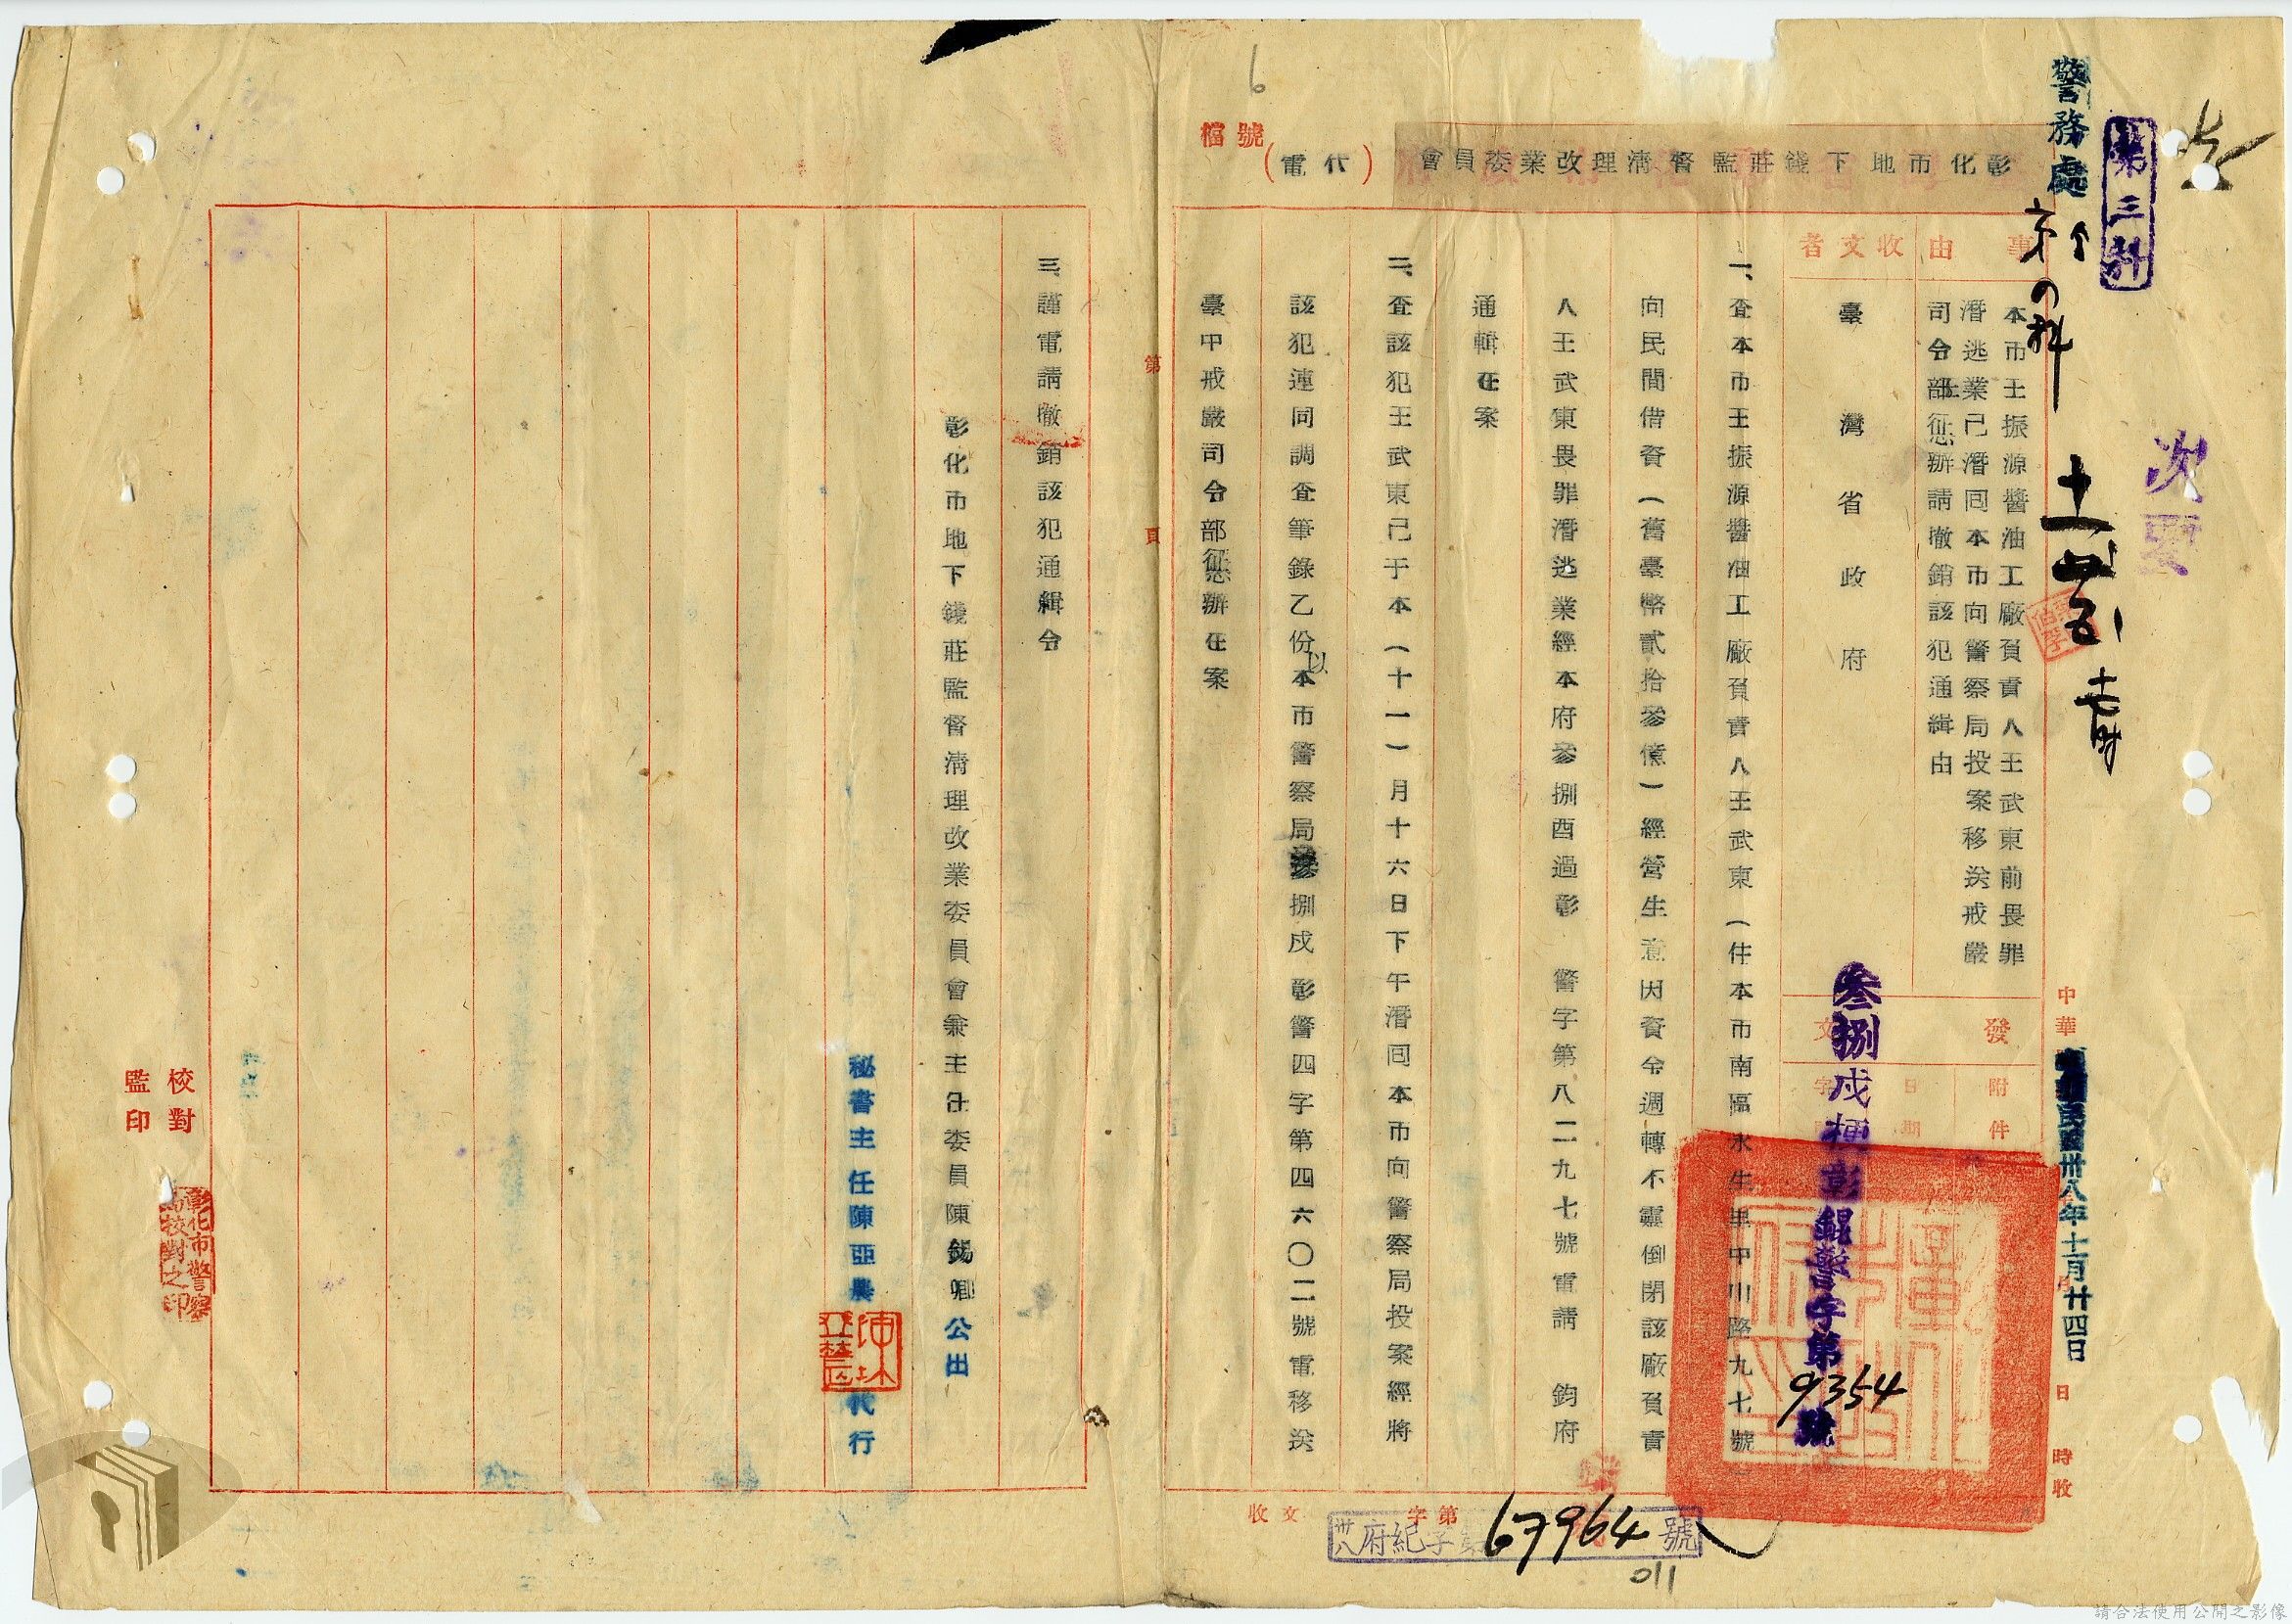 警務處
第三科
次要
彰化市地下錢莊監督清理改業委員會（代電）
檔號
6
事由
本市王振源醬油工廠負責人王武東前畏罪
潛逃業已潛回本市向警察局投案移送戒嚴
司令部懲辦請撤銷該犯通緝由
收文者
臺灣省政府
發文
附件
日期
字
叁捌戌梗彰錕警字第9354號
中華民國卅八年十一月廿四日
日時收
一、查本市王振源醬油工廠負責人王武東（住本市南區永生里中山路九七號）
向民間借資（舊臺幣貳拾參億）經營生意因資金週轉不靈倒閉該廠負責
人王武東畏罪潛逃業經本府參捌酉過彰警字第八二九七號電請鈞府
通輯在案
二、查該犯王武東已于本（十一）月十六日下午潛回本市向警察局投案經將
該犯連同調查筆錄乙份以本市警察局參捌戌彰警四字第四六〇二號電移送
臺中戒嚴司令部懲辦在案
第頁
三、謹電請撤銷該犯通緝令
彰化市地下錢莊監督清理改業委員會兼主任委員陳錫卿公出
秘書主任陳亞農代行
校對
監印
彰化市警察局校對之印
收文字第號
卅八府紀字第67964號
011
請合法使用公開之影像